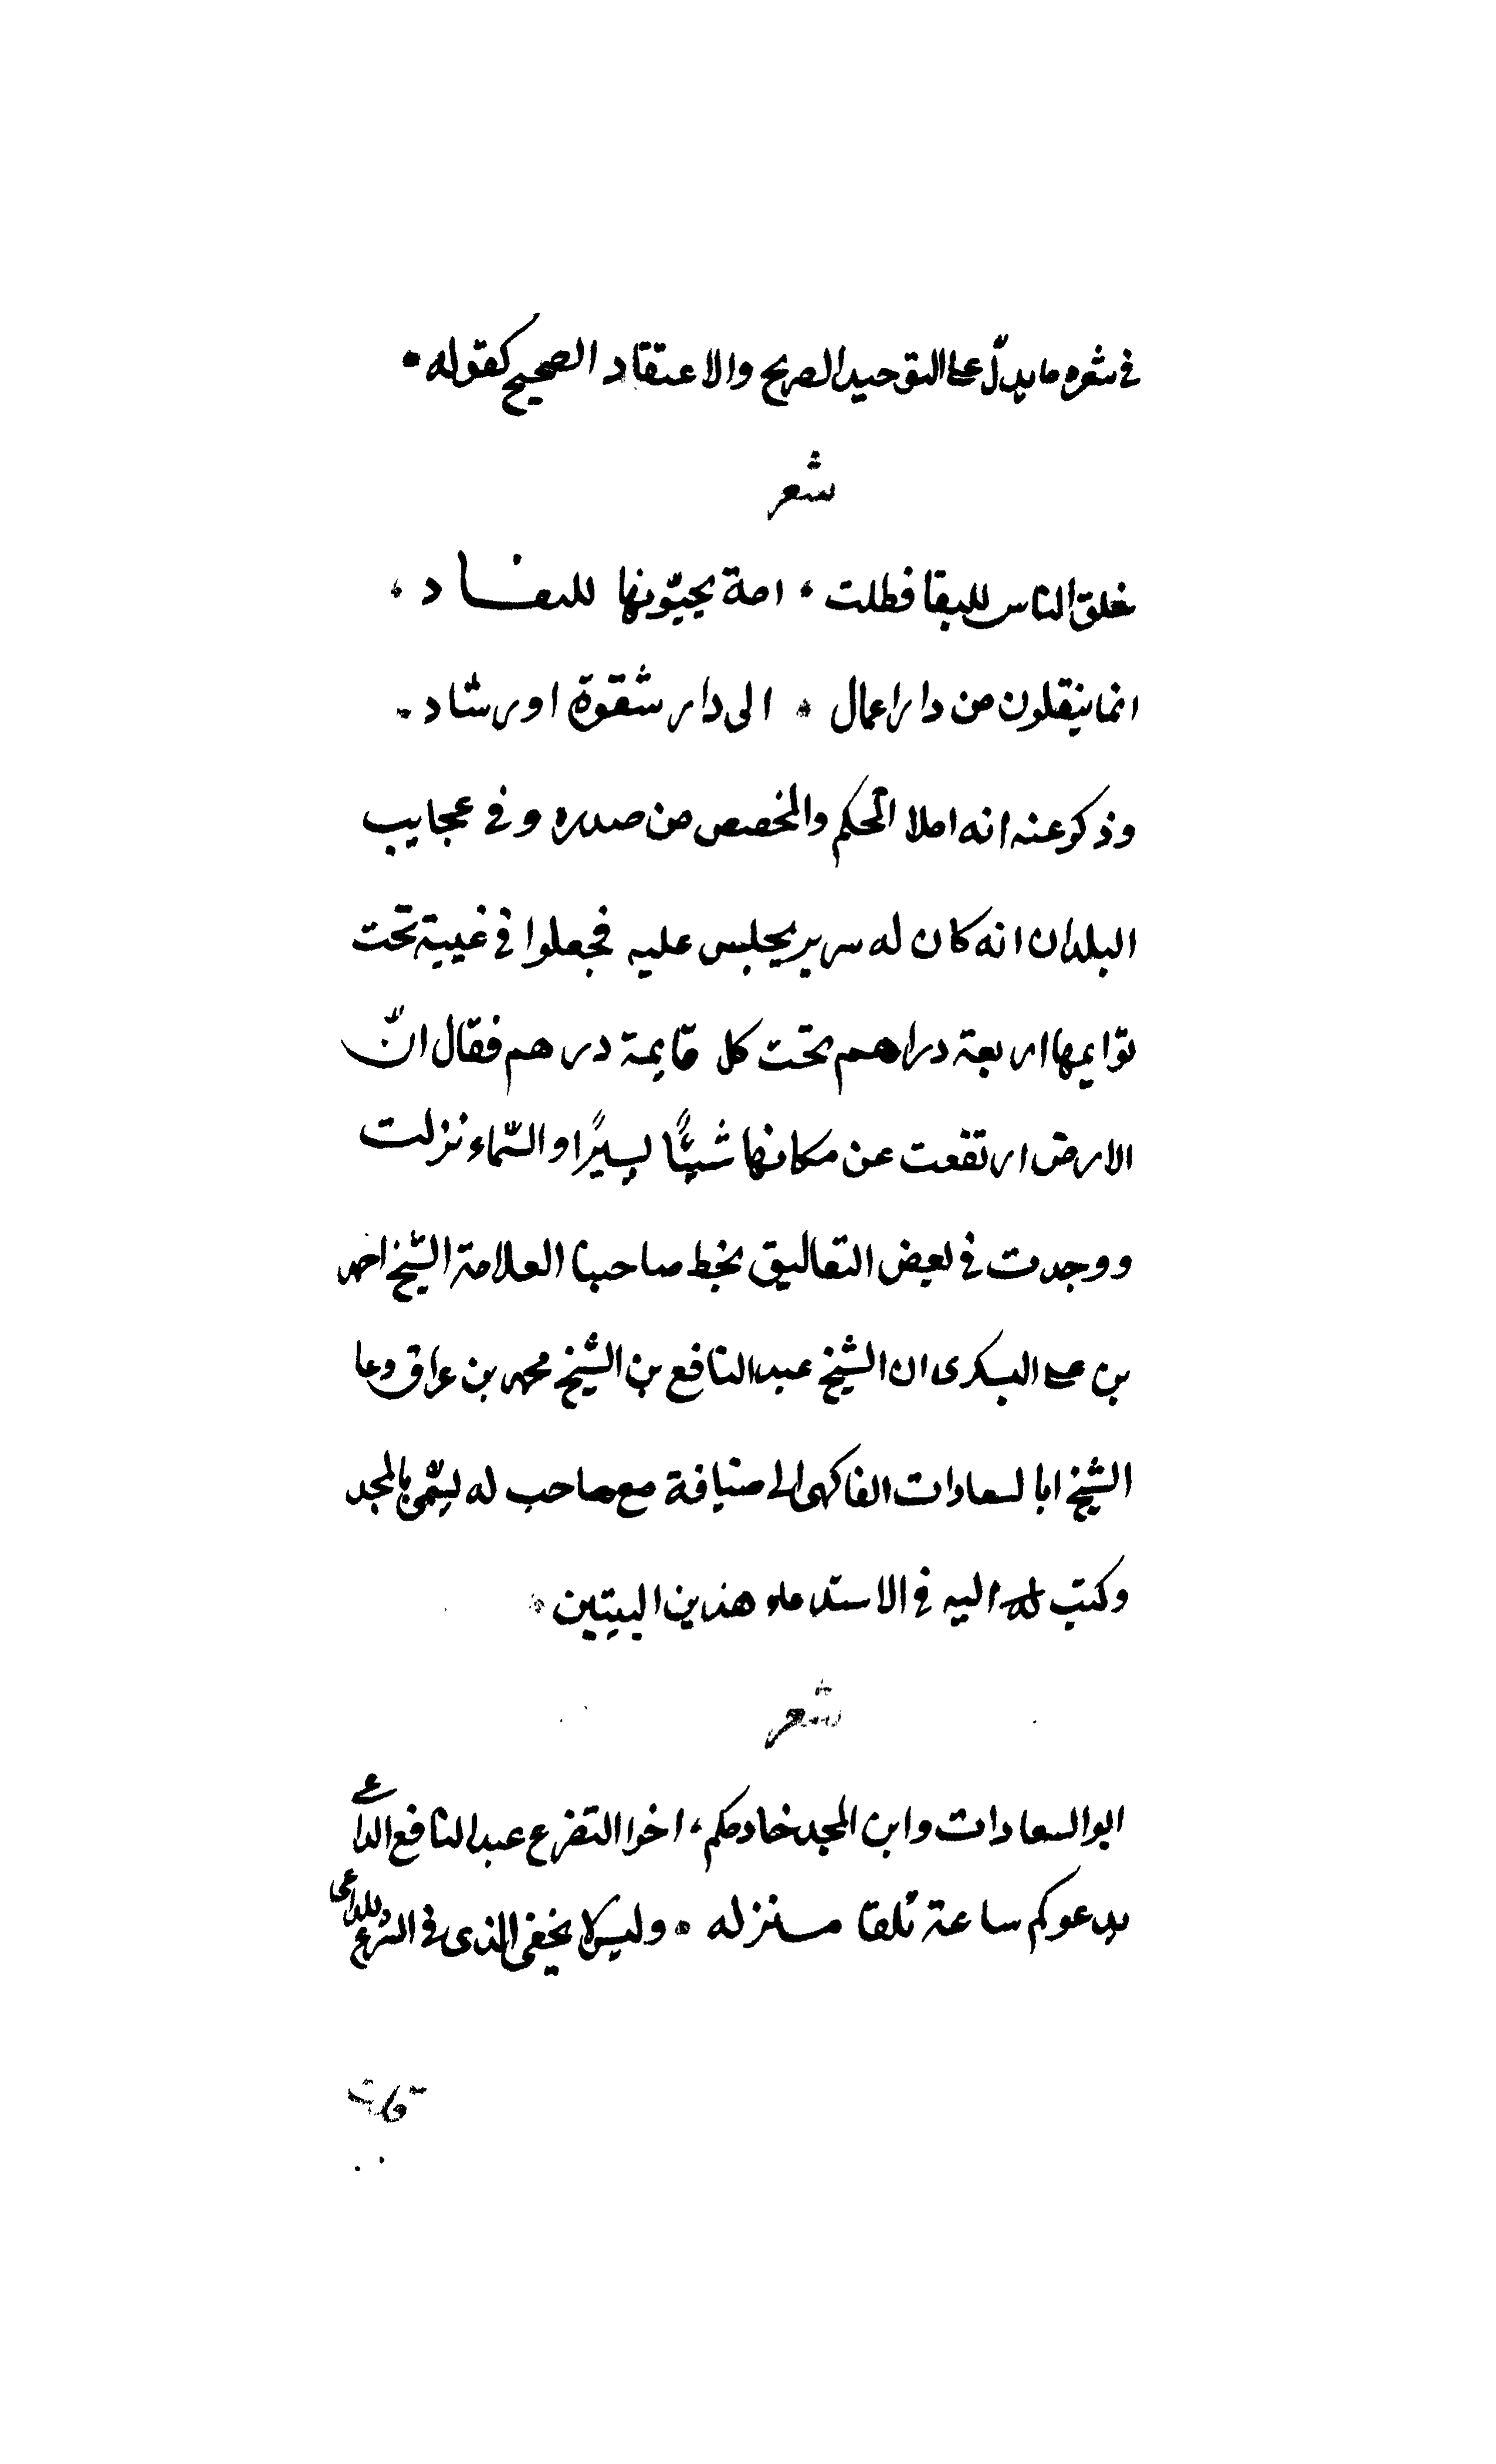 في شعره ما يدلّ على التوحيد الصريح والاعتقاد الصحيح كقوله
شعر
خلق الناس للبقا فظلت ، امة يحيّونها للنفاد ،
انما ينقلون من دار اعمال * الى دار شقوة او رشاد
وذكر عنه انه املا المحكم والمخصص من صدره وفي عجايب
البلدان انه كان له سرير يجلس عليه فجعلوا في غيبته تحت
قوايمها اربعة دراهم تحت كل قايمة درهم فقال انّ
الارض ارتفعت عن مكانها شيئًا يسيرًا والسّماء نزلت
ووجدت في بعض التعاليق بخط صاحبنا العلامة الشّيخ احمد
بن على البسكرى ان الشيخ عبد النافع بن الشيخ محمد بن عراق دعا
الشيخ ابا لسعادات الفاكهى الى ضيافة مع صاحب له يسّمى بالمجد
وكتب اليه في الاستدعاء هذين البيتين *
شعر
ابو السعادات وابن المجد خادمكم ، اخوا التضرع عبد النافع الداعي
يدعوكم ساعة تلقا منزله * وليس لا يخفى الذى في الشرع للداعى